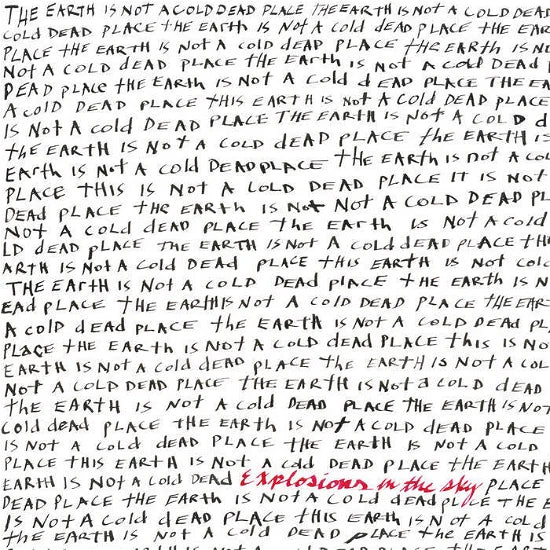 THE EARTH IS NOT A COLD DEAD PLACE THE EARTH IS NOT A COLD DEAD
COLD DEAD PLACE THE EARTH IS NOT A COLD DEAD PLACE THE EAR
PLACE THE EARTH IS NOT A COLD DEAD PLACE THE EARTH IS NO
NOT A COLD DEAD PLACE THE EARTH IS NOT A COLD DEAD
DEAD PLACE THE EARTH IS NOT A COLD DEAD PLACE THE EA
A COLD DEAD PLACE THIS EARTH IS NOT A COLD DEAD PLACE
IS NOT A COLD DEAD PLACE THE EARTH IS NOT A COLD D
THE EARTH IS NOT A COLD DEAD PLACE THE EARTH IS
EARTH IS NOT A COLD DEAD PLACE THE EARTH IS NOT A CO
PLACE THIS IS NOT A COLD DEAD PLACE IT IS NOT
DEAD PLACE THE EARTH IS NOT NOT A COLD DEAD PL
NOT A COLD DEAD PLACE THE EARTH IS NOT A COLD
LD DEAD PLACE THE EARTH IS NOT A COLD DEAD PLACE TH
ARTH IS NOT A COLD DEAD PLACE THIS EARTH IS NOT COLD
THE EARTH IS NOT A COLD DEAD PLACE THE EARTH IS N
EAD PLACE THE EARTH IS NOT A COLD DEAD PLACE THE EAR
A COLD DEAD PLACE THE EARTH IS NOT A COLD DEAD PL
PLACE THE EARTH IS NOT A COLD DEAD PLACE THIS IS NO
EARTH IS NOT A COLD DEAD PLACE THE EARTH IS NOT A COL
NOT A COLD DEAD PLACE THE EARTH IS NOT A COLD DEAD
THE EARTH IS NOT A COLD DEAD PLACE THE EARTH IS NOT
COLD DEAD PLACE THE EARTH IS NOT A COLD DEAD PLACE
IS NOT A COLD DEAD PLACE THE EARTH IS NOT A COLD
PLACE THIS EARTH IS NOT A COLD DEAD PLACE THE EARTH
EARTH IS NOT A COLD DEAD Explosions in the sky PLACE
DEAD PLACE THE EARTH IS NOT A COLD DEAD PLACE THE E
IS NOT A COLD DEAD PLACE THIS EARTH IS NOT A COLD
THE EARTH IS NOT A COLD DEAD PLACE THE EARTH IS